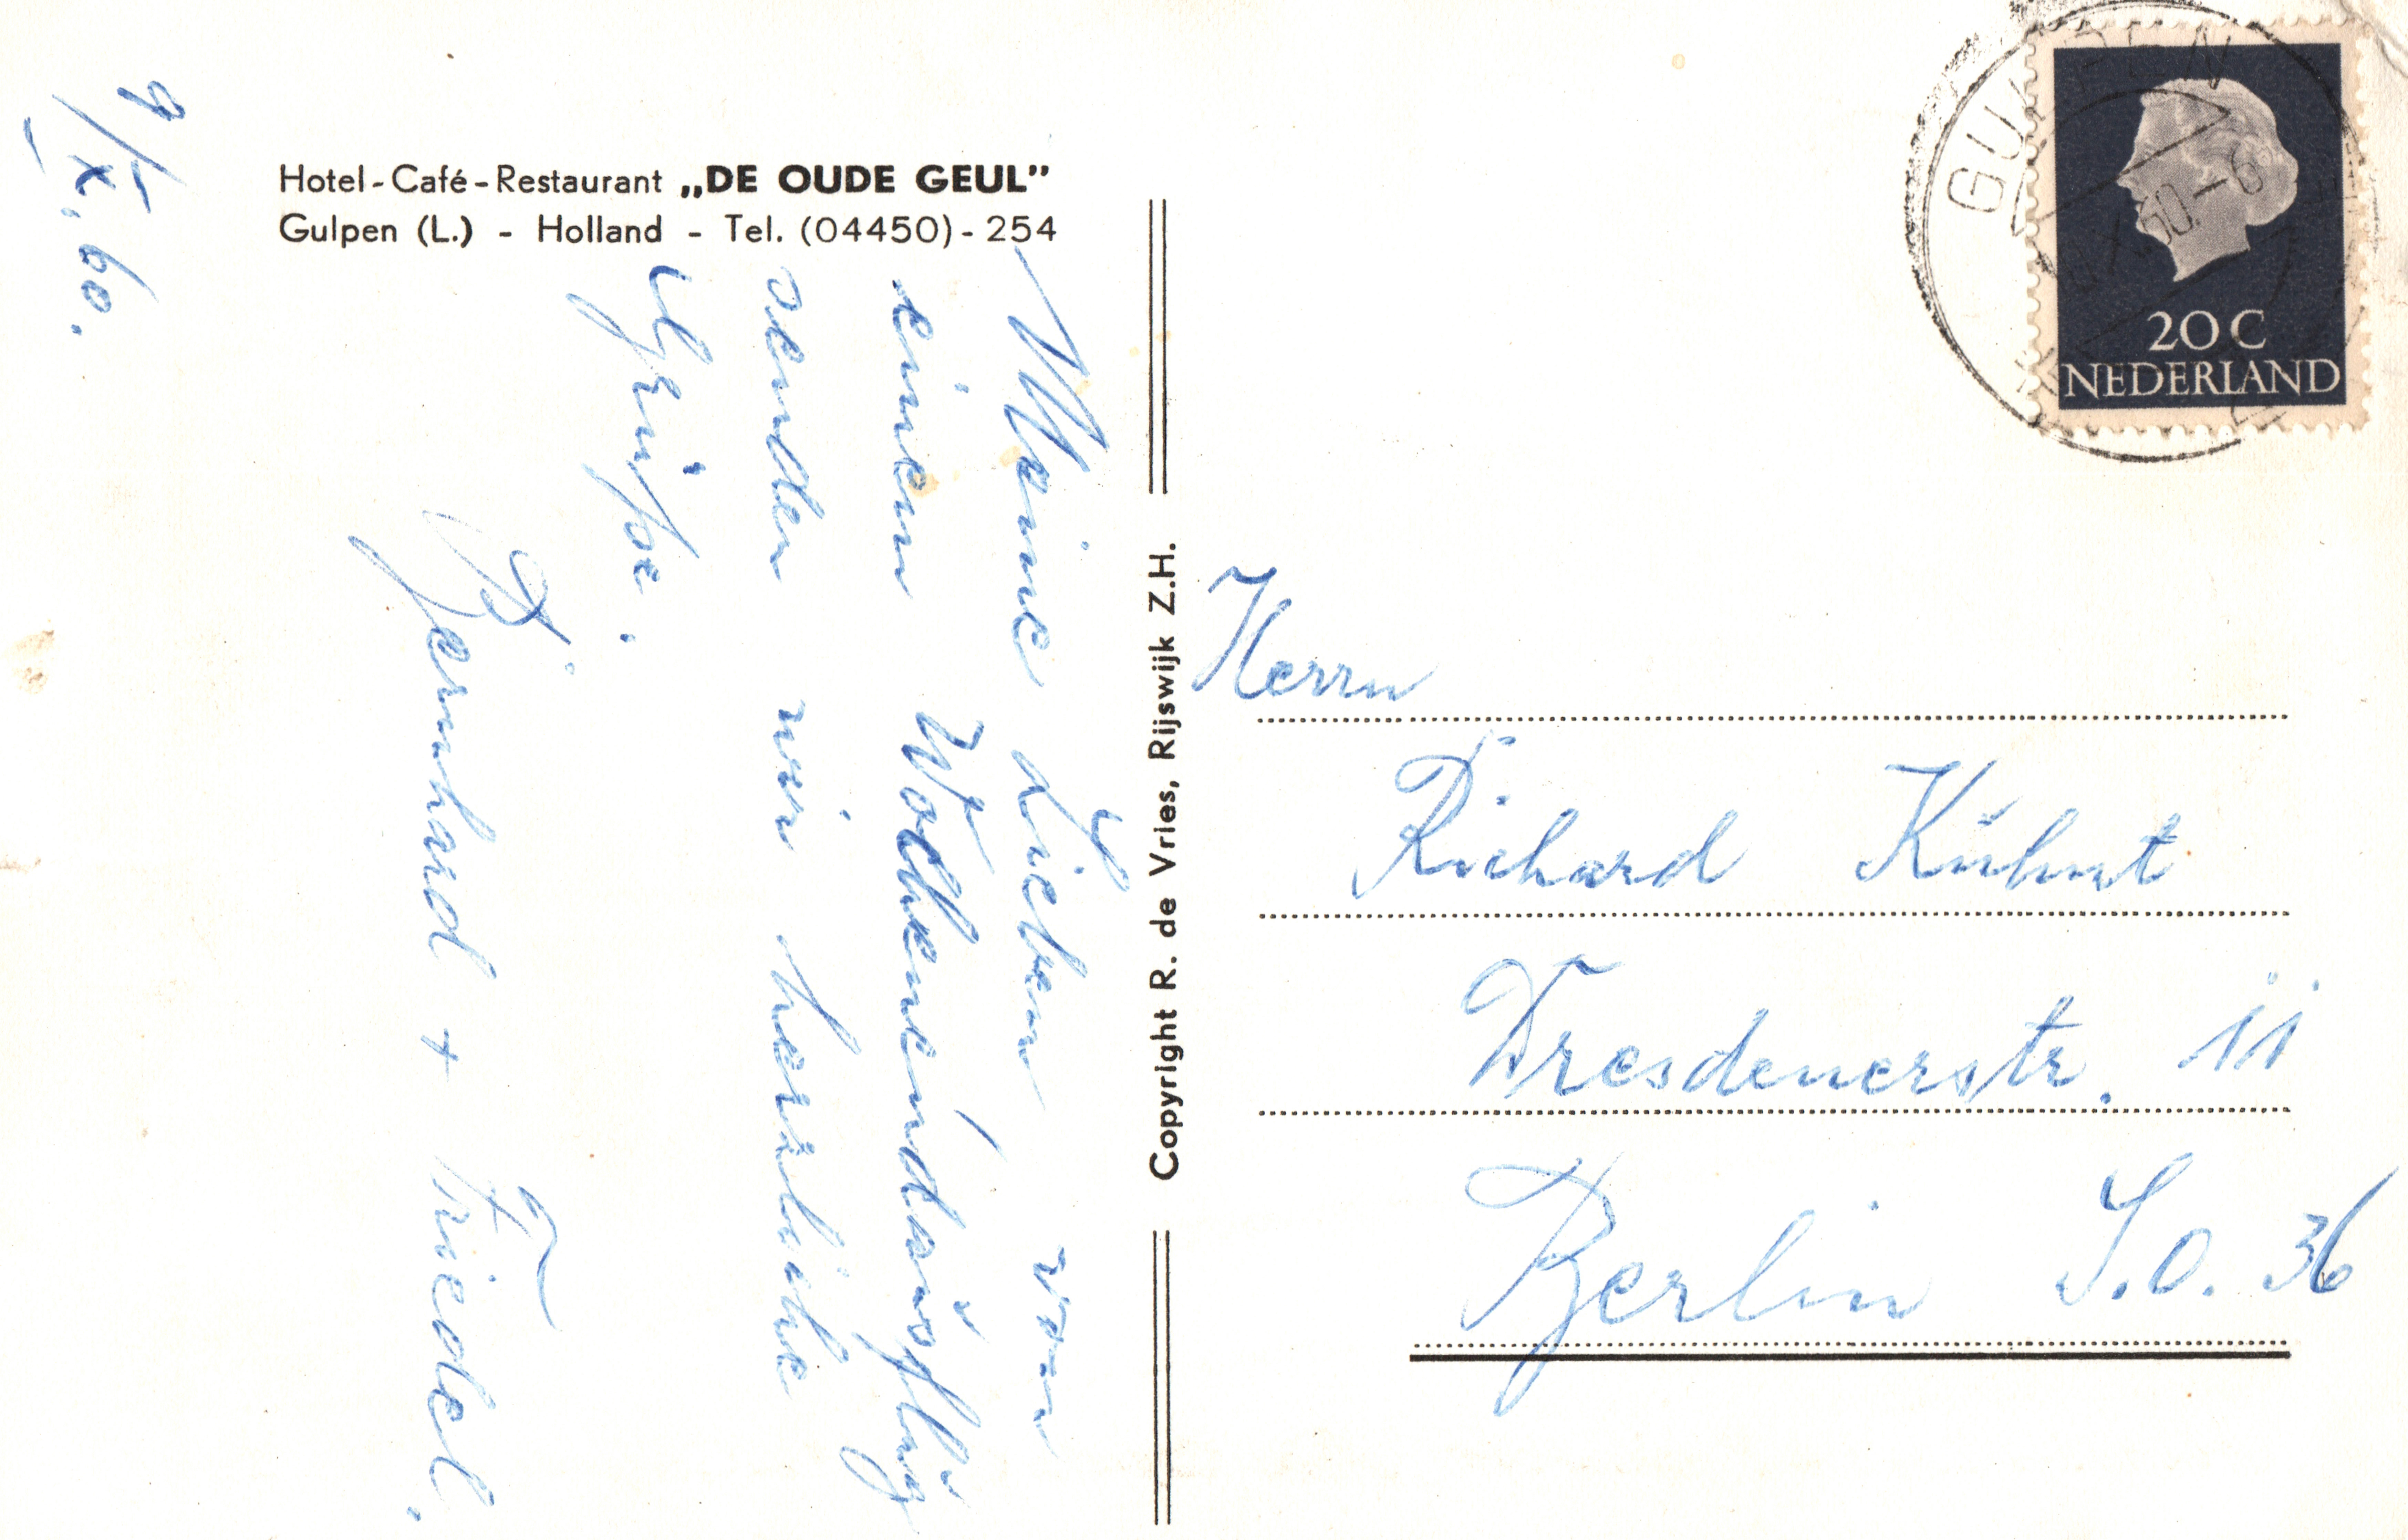 9/X. 60.
Hotel-Café-Restaurant „DE OUDE GEUL”
Gulpen (L.) - Holland - Tel. (04450)-254
Meine Lieben von
einem Wochenendausflug
senden wir herzliche
Grüße.
Bernhard + Friedel.
Copyright R. de Vries, Rijswijk Z.H.
GULPEN
60.-6
20 C
NEDERLAND
Herrn
Richard Kühnt
Dresdenerstr. 11
Berlin S.O. 36